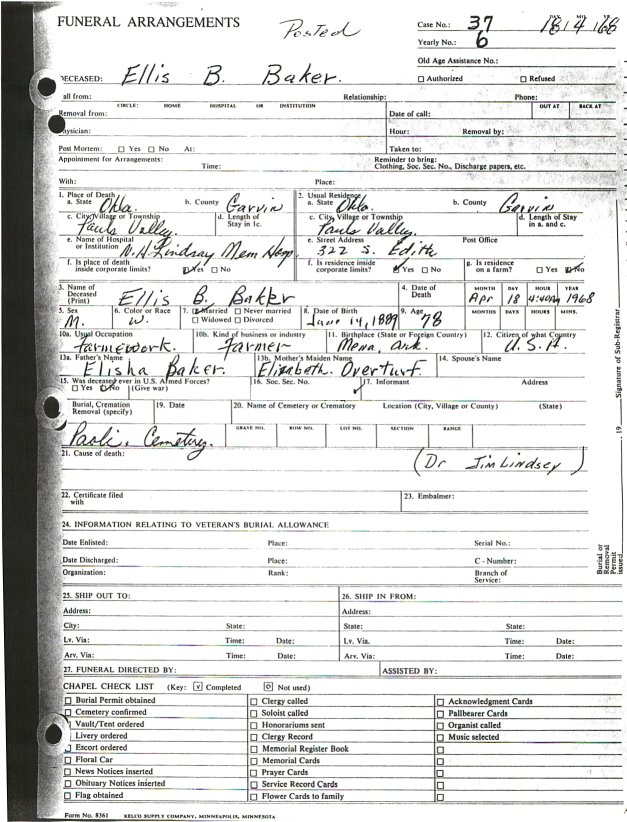 FUNERAL ARRANGEMENTS
Posted
Case No.: 37
Yearly No.: 6
Old Age Assistance No.:
Authorized Refused
DECEASED: Ellis B. Baker.
all from: Relationship: Phone:
CIRCLE: HOME HOSPITAL OR INSTITUTION OUT AT BACK AT
Removal from: Date of call:
Physician: Hour: Removal by:
Post Mortem: Yes No At: Taken to:
Appointment for Arrangements: Reminder to bring:
Time: Clothing, Soc. Sec. No., Discharge papers, etc.
With: Place:
1. Place of Death 2. Usual Residence
a. State Okla. b. County Garvin a. State Okla. b. County Garvin
c. City/Village or Township d. Length of Stay in 1c. c. City, Village or Township d. Length of Stay in a. and c.
Pauls Valley. Pauls Valley.
e. Name of Hospital or Institution W.H. Lindsay Mem Hosp. e. Street Address 322 S. Edith Post Office
f. Is place of death inside corporate limits? Yes No f. Is residence inside corporate limits? Yes No g. Is residence on a farm? Yes No
3. Name of Deceased (Print) Ellis B. Baker 4. Date of Death MONTH DAY HOUR YEAR
Apr 18 4:40AM 1968
5. Sex 6. Color or Race 7. Married Never married 8. Date of Birth 9. Age MONTHS DAYS HOURS MINS.
M. W. Widowed Divorced June 14, 1889 78
10a. Usual Occupation 10b. Kind of business or industry 11. Birthplace (State or Foreign Country) 12. Citizen of what Country
farmework. Farmer Mena, Ark. U.S.A.
13a. Father's Name 13b. Mother's Maiden Name 14. Spouse's Name
Elisha Baker. Elizabeth. Overturf.
15. Was deceased ever in U.S. Armed Forces? 16. Soc. Sec. No. 17. Informant Address
Yes No (Give war)
Burial, Cremation Removal (specify) 19. Date 20. Name of Cemetery or Crematory Location (City, Village or County) (State)
GRAVE NO. ROW NO. LOT NO. SECTION RANGE
Paoli, Cemetery.
21. Cause of death: (Dr Jim Lindsey)
22. Certificate filed with 23. Embalmer:
24. INFORMATION RELATING TO VETERAN'S BURIAL ALLOWANCE
Date Enlisted: Place: Serial No.:
Date Discharged: Place: C - Number:
Organization: Rank: Branch of Service:
25. SHIP OUT TO: 26. SHIP IN FROM:
Address: Address:
City: State: State: State:
Lv. Via: Time: Date: Lv. Via. Time: Date:
Arv. Via: Time: Date: Arv. Via: Time: Date:
27. FUNERAL DIRECTED BY: ASSISTED BY:
CHAPEL CHECK LIST (Key: v Completed O Not used)
Burial Permit obtained Clergy called Acknowledgment Cards
Cemetery confirmed Soloist called Pallbearer Cards
Vault/Tent ordered Honorariums sent Organist called
Livery ordered Clergy Record Music selected
Escort ordered Memorial Register Book
Floral Car Memorial Cards
News Notices inserted Prayer Cards
Obituary Notices inserted Service Record Cards
Flag obtained Flower Cards to family
Form No. 8361 KELCO SUPPLY COMPANY, MINNEAPOLIS, MINNESOTA
Signature of Sub-Registrar
19
Burial or Removal Permit issued